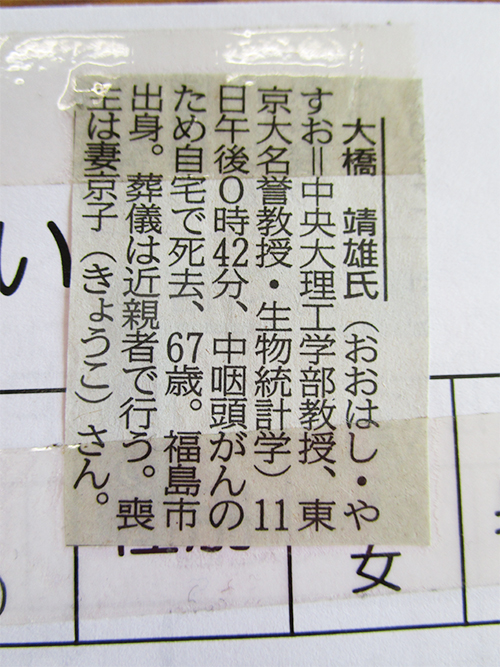 大橋　靖雄氏（おおはし・や
すお＝中央大理工学部教授、東
京大名誉教授・生物統計学）11
日午後０時42分、中咽頭がんの
ため自宅で死去、67歳。福島市
出身。葬儀は近親者で行う。喪
主は妻京子（きょうこ）さん。
い
女